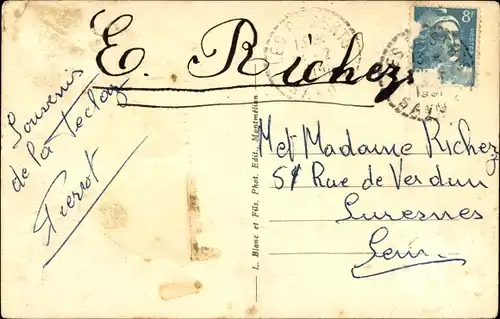 E. Richez
Souvenir
de la Féclaz
Pierrot
L. Blanc et Fils, Phot. Edit. Montmélian
8F
M et Madame Richez
51 Rue de Verdun
Suresnes
Seine